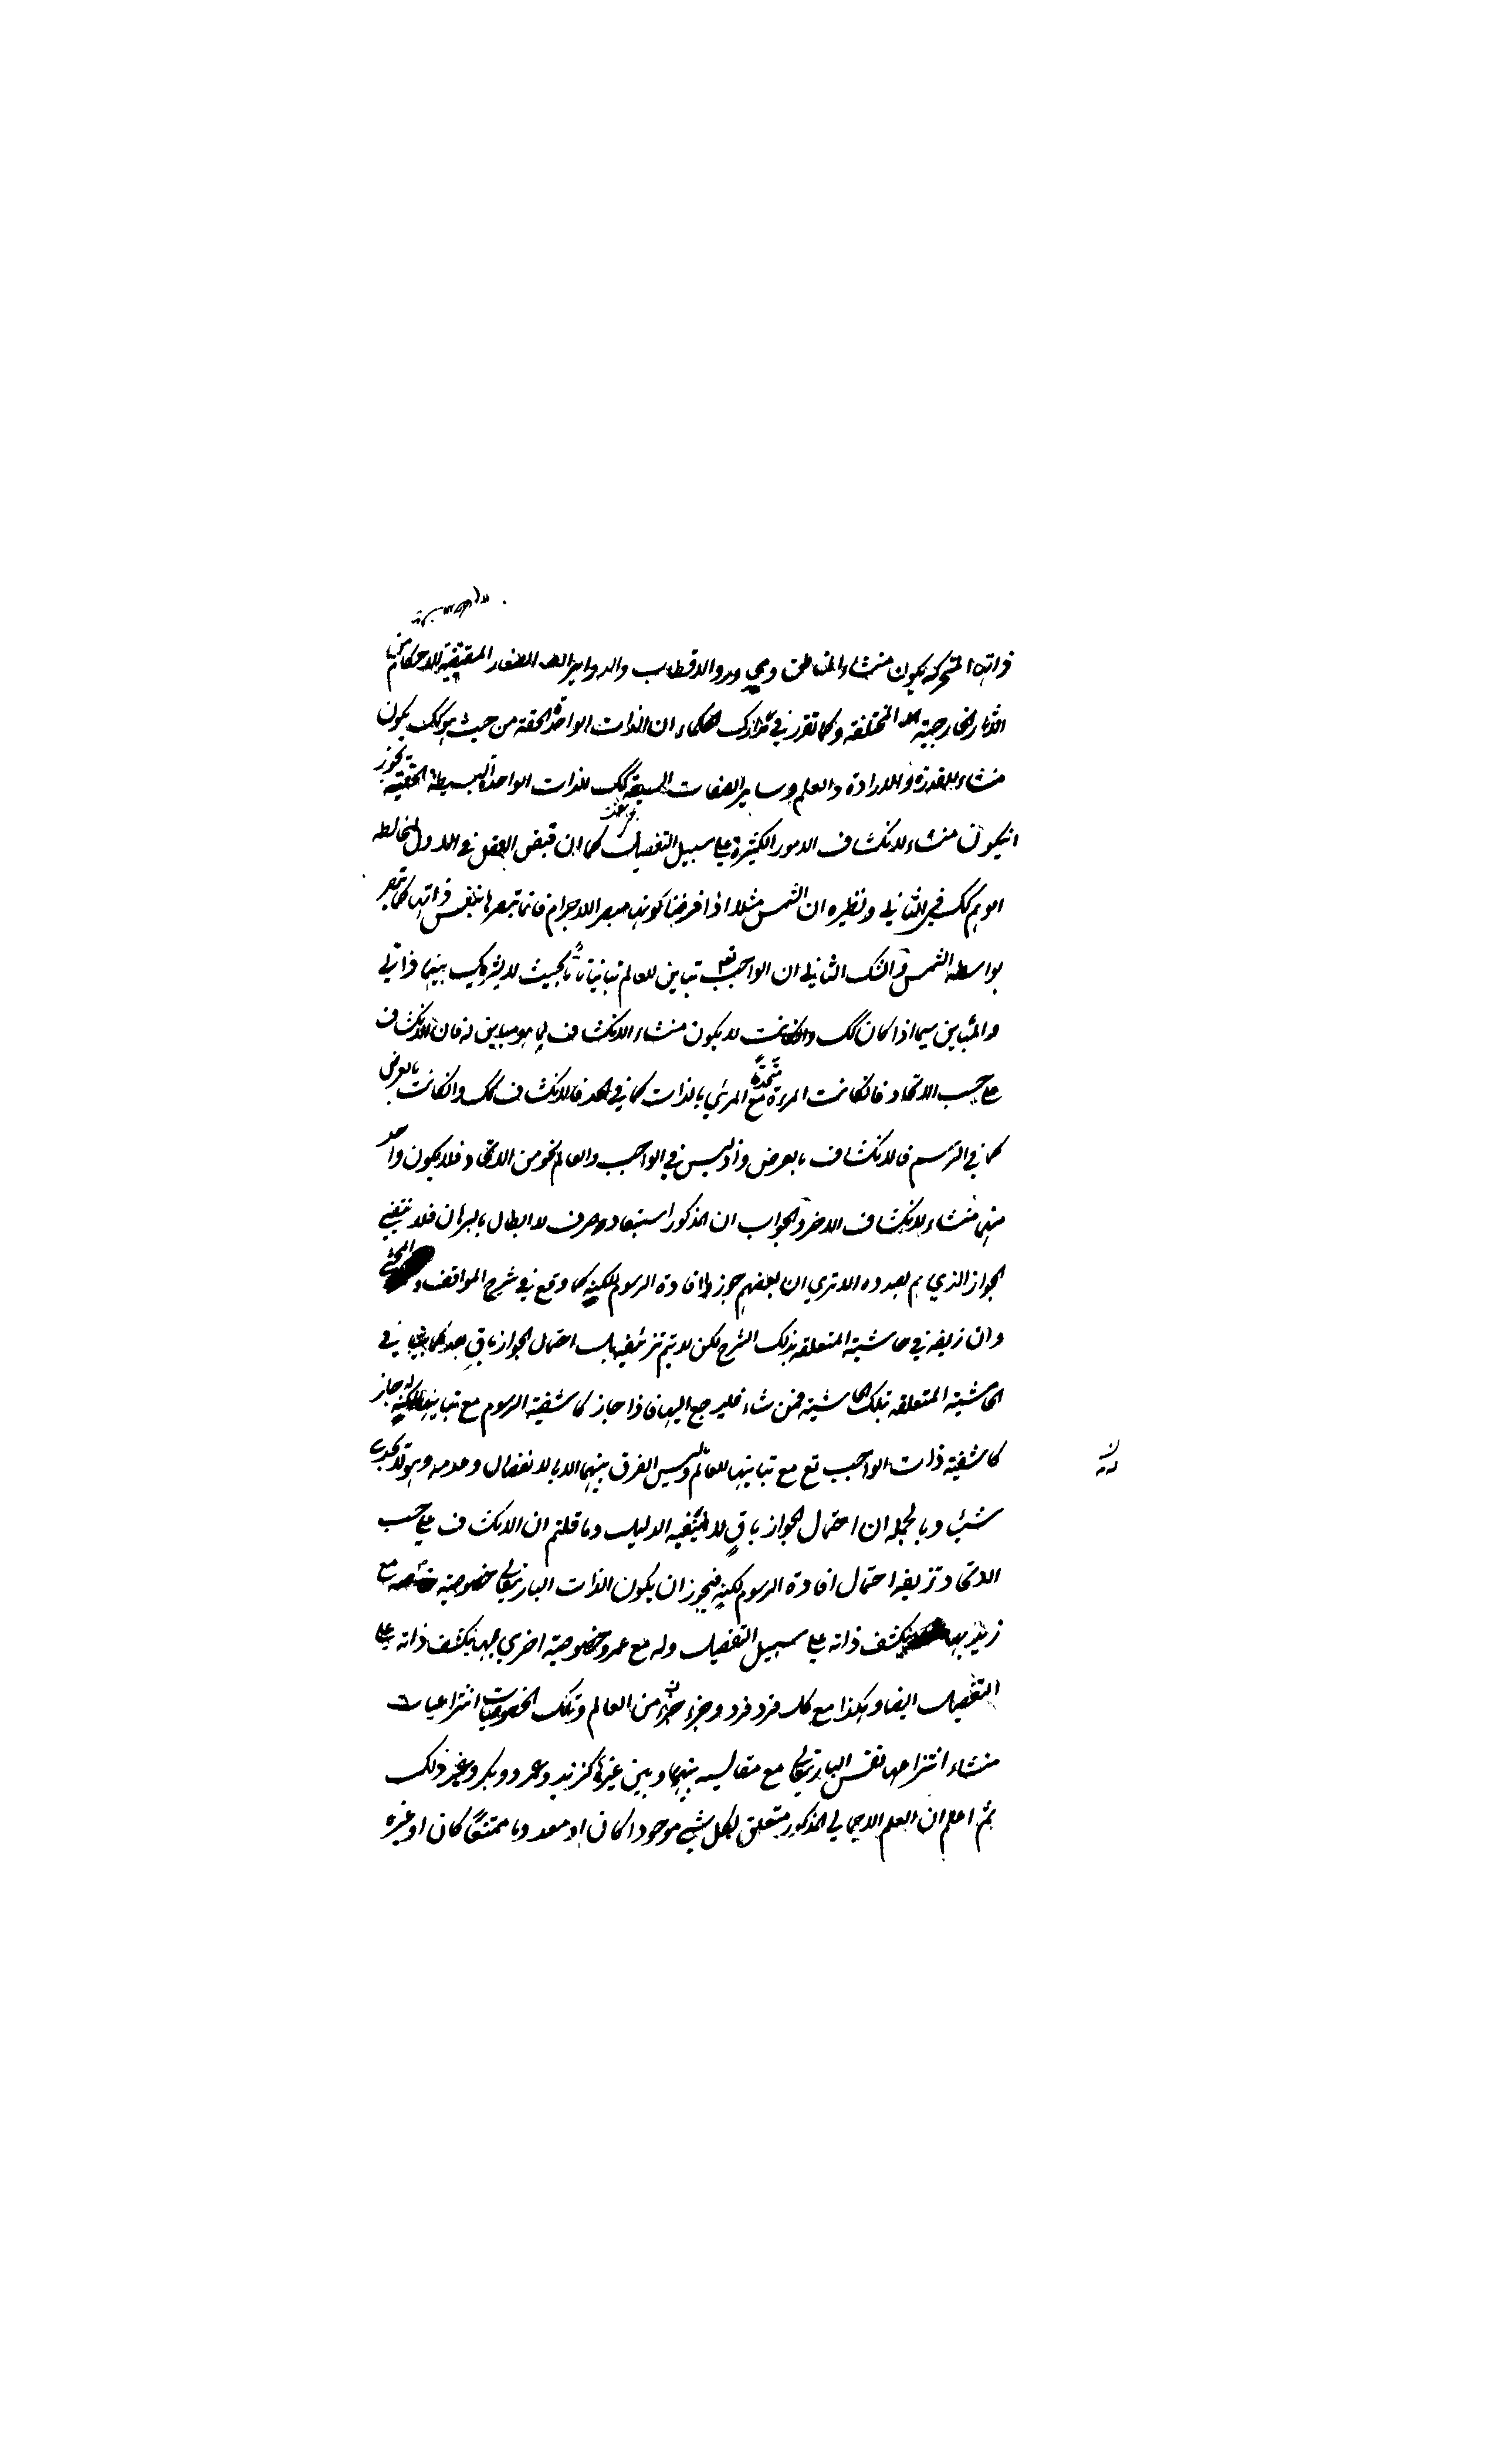 ذاتها المتحركة يكون منشاء المناطق و الاقطاب والدواير الصغار المقتضية للاحكام من
الاثار الخارجية المختلفة وكما تقرر في مدارك الحكماء ان الذات الواحدة الحقة من حيث هو كك يكون
منشاء للقدرة والارادة والعلم وساير الصفات كك للذات الواحدة البسيطة الحقيقية يجوز
انيكون منشاء لانكشاف الامور الكثيرة على سبيل التفصيل كما ان قبض العقل في الاول
الوهم كك في الثاني ونظيره ان الشمس مثلا اذا فرضنا كونها مبصر الاجرام فانما تبصرها بنفس ذاتها كما تبصر
بواسطة الشمس والشك الثاني ان الواجب تعم تباين للعالم تباينا تاما بحيث لا يشترك بينهما ذاتي
والمباين سيما اذا كان كك لا يكون منشاء الانكشاف لما هو مباين له فان الانكشاف
على حسب الاتحاد فانكانت المرءة متحدة مع المرئي بالذات كما في الحد فالانكشاف كك وانكانت بالعرض
كما في الرسم فالانكشاف بالعرض واذ ليس في الواجب والعالم نحو من الاتحاد فلا يكون واحد
منها منشاء لانكشاف الاخر والجواب ان المذكور استبعاد صرف لا ابطال بالبرهان فلا ينتفي
الجواز الذي هم بصدده الا ترى ان بعضهم جوز افادة الرسوم للكنه كما وقع في شرح المواقف والمحشي
وان زيفه في حاشية المتعلقة بذلك الشرح لكن لا يتم تزئيفه بل احتمال الجواز باق بعد كما في
الحاشية المتعلقة بتلك الحاشية فمن شاء فليرجع اليها فاذا جاز كاشفية الرسوم مع تباينها للكنه جاز
كاشفية ذات الواجب تع مع تباينها للعالم وليس الفرق بينهما الا بالانفصال وعدمه وهو لا يجدي
شيئ وبالجملة ان احتمال الجواز باقٍ لا ينفيه الدليل وما قلتم ان الانكشاف على حسب
الاتحاد تزيفه احتمال افادة الرسوم لكنه فيجوز ان يكون الذات الباري تعالى خصوصية خاصة مع
زيد بها ينكشف ذاته على سبيل التفصيل وله مع عمرو خصوصية اخرى بها ينكشف ذاته على
التفصيل ايضا وهكذا مع كل فرد فرد وجزء جزء من العالم وتلك الخصوصيات انتزاعيات
منشاء انتزاعها نفس الباري تعالى مع مقايسة بينها وبين غيره كزيد وعمرو وبكر وغير ذلك
ثم اعلم ان العلم الاجمالي المذكور متعلق بكل شيء موجودا كان او معدوما ممتنعًا كان او غيره